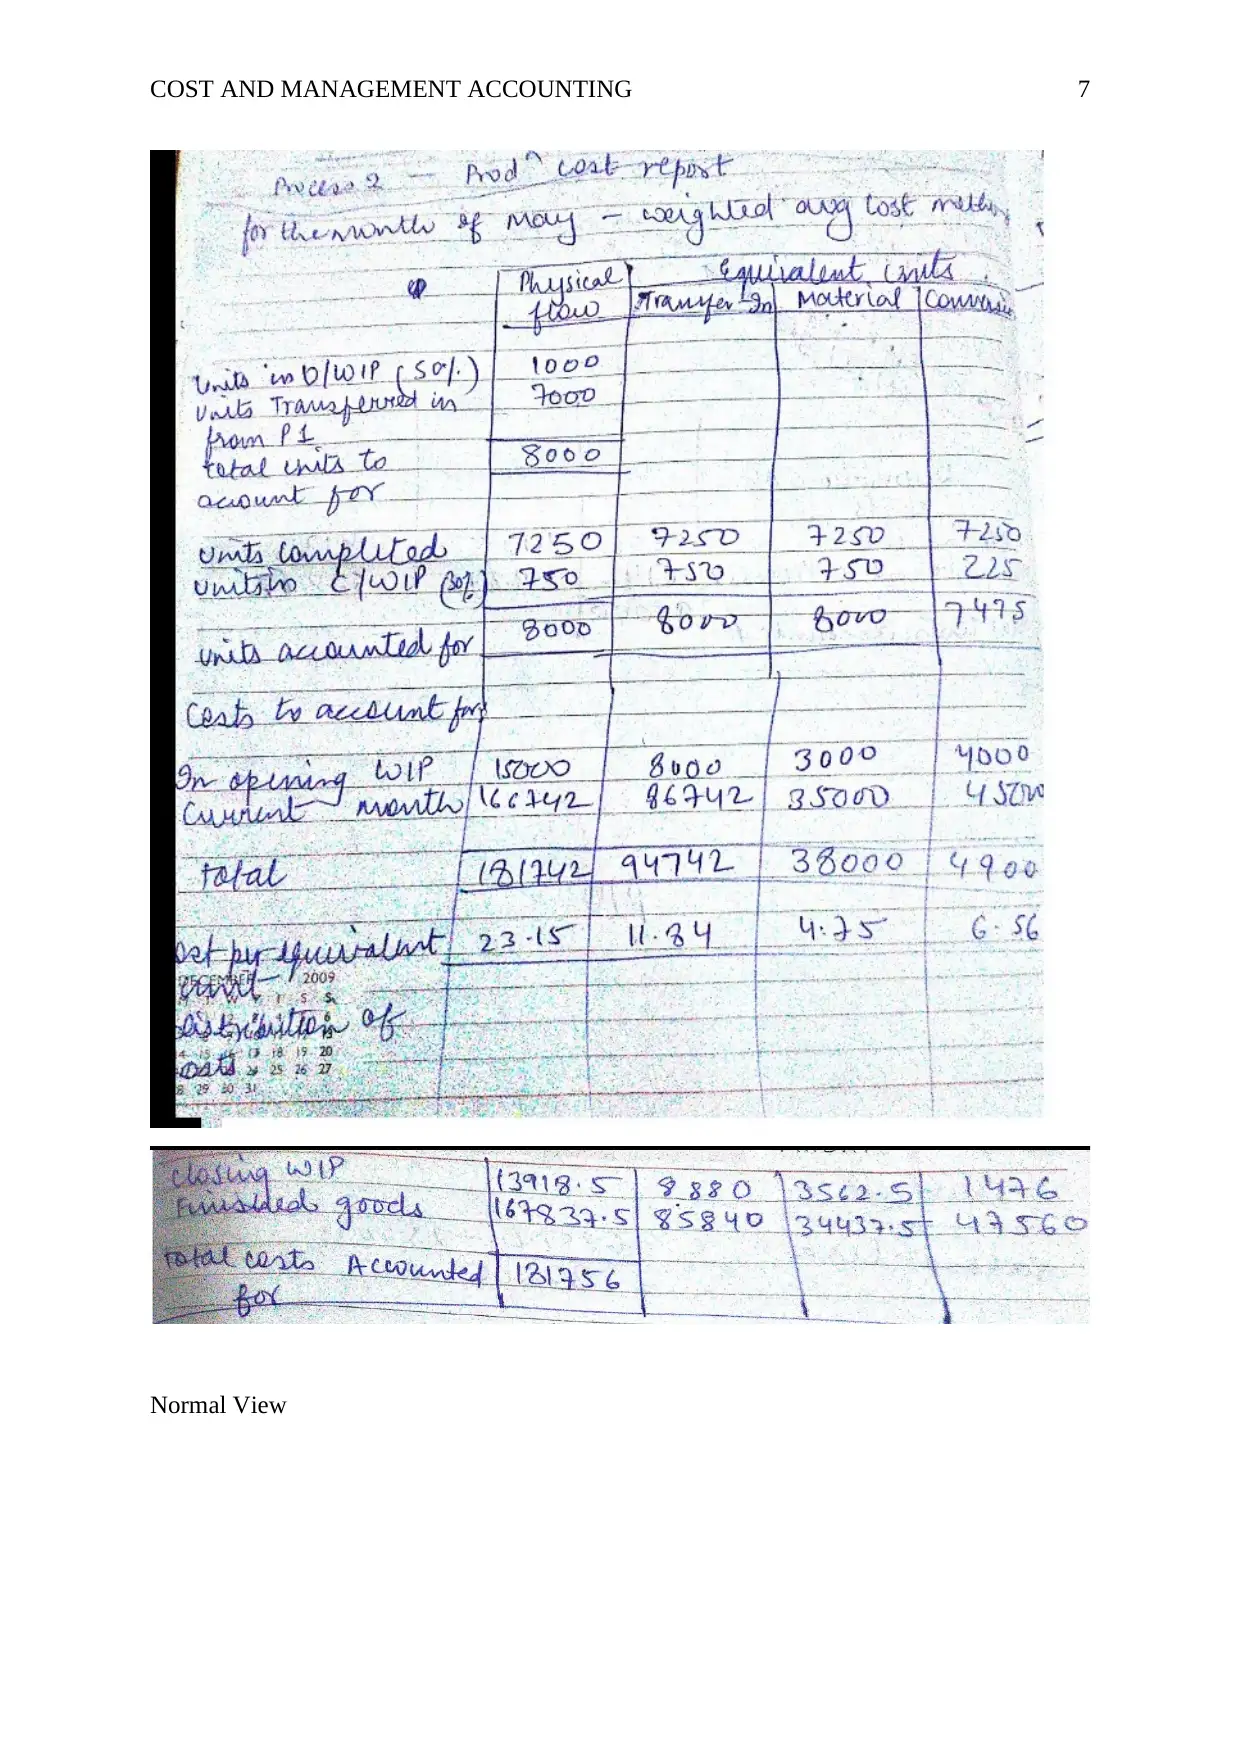 COST AND MANAGEMENT ACCOUNTING 7
Process 2 – Prodn cost report
for the month of May – weighted avg cost
Physical Equivalent Units
flow Transfer In Material
Units in O/WIP (50%) 1000
Units Transferred in 7000
from P 1
total units to 8000
account for
Units completed 7250 7250 7250 7250
units in C/WIP (30%) 750 750 750 225
units accounted for 8000 8000 8000 7475
Costs to account for
In opening WIP 15000 8000 3000 4000
Current month 166742 86742 35000 45000
total 181742 94742 38000 4900
cost per equivalent 23.15 11.84 4.75 6.56
unit
DECEMBER 2009
S S
distribution of
18 19 20
costs 25 26 27
29 30 31
closing WIP 13918.5 8880 3562.5 1476
Finished goods 167837.5 85840 34437.5 47560
Total costs Accounted 181756
for
Normal View